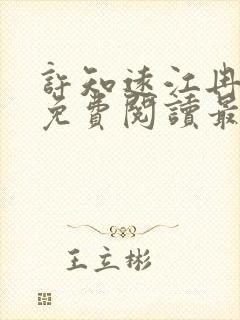 許知遠江冉
免費閱讀最
王立彬